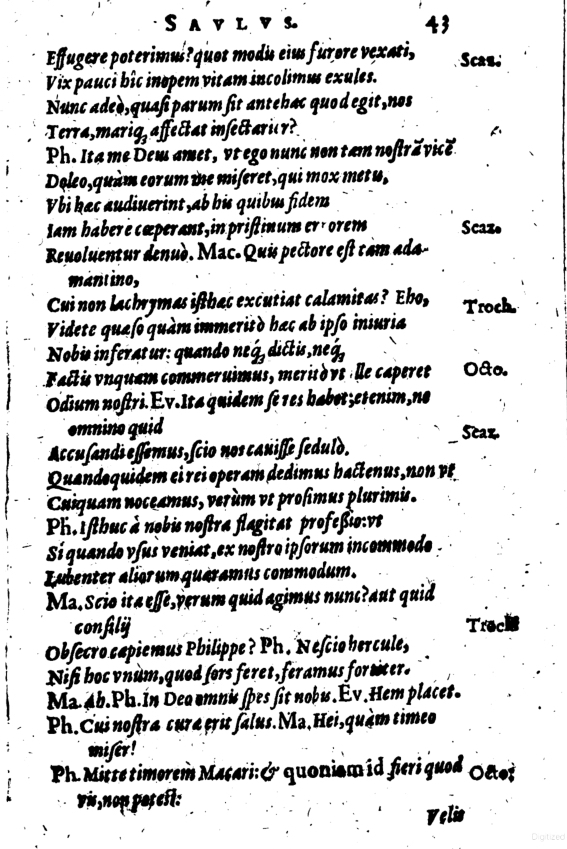 SAVLVS. 43
Effugere poterimus? quot modis eius furore vexati, Scaz.
Vix pauci hîc inopem vitam incolimus exules.
Nunc adeò, quasi parum sit antehac quod egit, nos
Terra, mariq́; affectat insectarier?
Ph. Ita me Deus amet, vt ego nunc non tam nostrā vicē
Doleo, quàm eorum me miseret, qui mox metu,
Vbi hac audiuerint, ab his quibus fidem
Iam habere cœperant, in pristinum errorem Scaz.
Reuoluentur denuò. Mac. Quis pectore est tam ada-
mantino,
Cui non lachrymas isthac excutiat calamitas? Eho, Troch.
Videte quaso quàm immeritò hac ab ipso iniuria
Nobis inferatur: quando neq́; dictis, neq́;
Factis vnquam commeruimus, meritò vt ille caperet Octo.
Odium nostri. Ev. Ita quidem se res habet; etenim, ne
omnino quid Scaz.
Accusandi essemus, scio nos cauisse sedulò.
Quandoquidem ei rei operam dedimus hactenus, non vt
Cuiquam noceamus, verùm vt prosimus plurimis.
Ph. Isthuc à nobis nostra flagitat professio: vt
Si quando vsus veniat, ex nostro ipsorum incommodo
Lubenter aliorum quaramus commodum.
Ma. Scio ita esse, verum quid agimus nunc? aut quid
consilij Troch
Obsecro capiemus Philippe? Ph. Nescio hercule,
Nisi hoc vnum, quod sors feret, feramus fortiter.
Ma. Ah. Ph. In Deo omnis spes sit nobis. Ev. Hem placet.
Ph. Cui nostra cura erit salus. Ma. Hei, quàm timeo
miser!
Ph. Mitte timorem Macari: & quoniam id fieri quod Octo.
vis, non potest:
Velis
Digitized